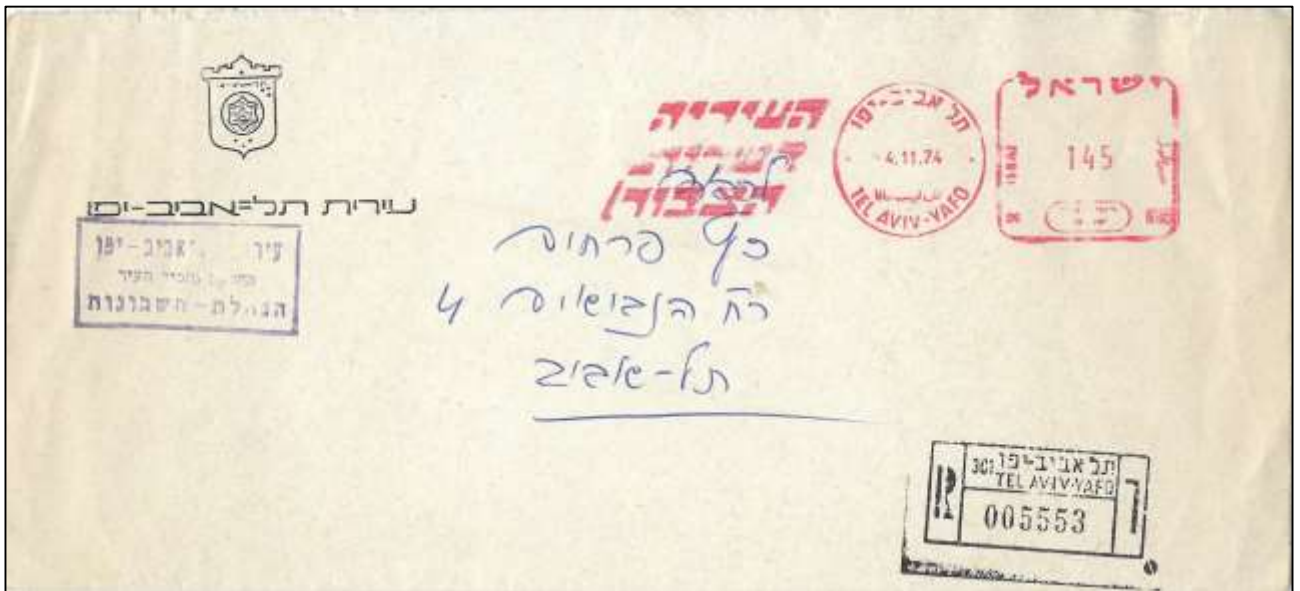 עירית תל=אביב-יפו
אביב-יפו
הנהלת-חשבונות
העיריה
לשירות
הציבור
תל אביב-יפו
4.11.74
TEL AVIV-YAFO
ישראל
145
ISRAEL
לכבוד
כף פרחים
רח הנביאים 4
תל-אביב
תל אביב-יפו
301
TEL AVIV-YAFO
R
ר
005553